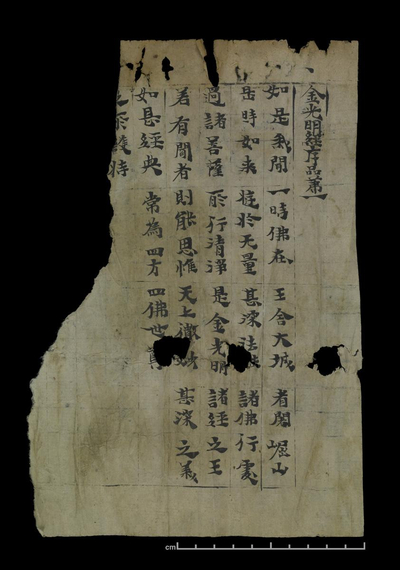 金光明經序品苐一
如是我聞 一時佛在 王舍大城 耆闍崛山
是時如來 遊於无量 甚深法 諸佛行處
過諸菩薩 所行清淨 是金光明 諸經之王
若有聞者 則能思惟 无上微妙 甚深之義
如是經典 常為四方 四佛世尊
之所護持
cm